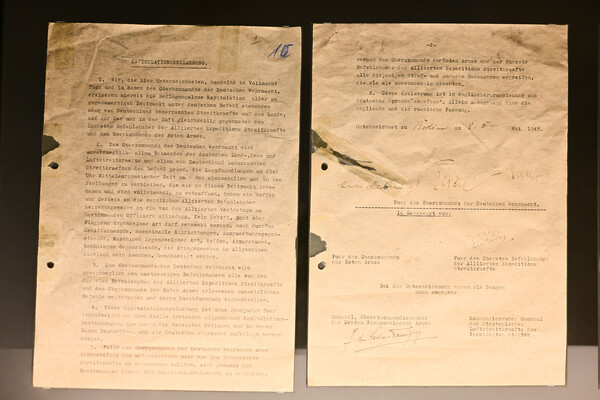 KAPITULATIONSERKLAERUNG.
1. Wir, die hier Unterzeichneten, handelnd in Vollmacht
fuer und im Namen des Oberkommandos der Deutschen Wehrmacht,
erklaeren hiermit die bedingungslose Kapitulation aller am
gegenwaertigen Zeitpunkt unter deutschem Befehl stehenden
oder von Deutschland beherrschten Streitkraefte auf dem Lande,
auf der See und in der Luft gleichzeitig gegenueber dem
Obersten Befehlshaber der Alliierten Expeditions Streitkraefte
und dem Oberkommando der Roten Armee.
2. Das Oberkommando der Deutschen Wehrmacht wird
unverzueglich allen Behoerden der deutschen Land-, See- und
Luftstreitkraefte und allen von Deutschland beherrschten
Streitkraeften den Befehl geben, die Kampfhandlungen um
Uhr Mitteleuropaeischer Zeit am Mai einzustellen und in den
Stellungen zu verbleiben, die sie an diesem Zeitpunkt
haben und sich vollstaendig zu entwaffnen, indem sie Waffen
und Geraete an die oertlichen Alliierten Befehlshaber
beziehungsweise an die von den Alliierten Vertretern zu
bestimmenden Offiziere abliefern. Kein Schiff, Boot oder
Flugzeug irgendeiner Art darf versenkt werden, noch duerfen
Schiffsruempfe, maschinelle Einrichtungen,
Maschinen irgendeiner Art, Waffen, Apparaturen,
technische Gegenstaende, die Kriegszwecken im Allgemeinen
dienlich sein koennen, beschaedigt werden.
3. Das Oberkommando der Deutschen Wehrmacht wird
unverzueglich den zustaendigen Befehlshabern alle von dem
Obersten Befehlshaber der Alliierten Expeditions Streitkraefte
und dem Oberkommando der Roten Armee erlassenen zusaetzlichen
Befehle weitergeben und deren Durchfuehrung sicherstellen.
4. Diese Kapitulationserklaerung ist ohne
irgendwelche an ihre Stelle tretenden allgemeinen Kapitulations-
bestimmungen,
und der Deutschen Wehrmacht auferlegt werden
moegen.
5. Falls das Oberkommando der Deutschen Wehrmacht oder
irgendwelche ihm unterstehende oder von ihm beherrschte
Streitkraefte es versaeumen sollten, sich gemaess den
Bestimmungen dieser Kapitulationserklaerung zu verhalten,
-2-
werden das Oberkommando der Roten Armee und der Oberste
Befehlshaber der Alliierten Expeditions Streitkraefte
alle diejenigen Straf- und anderen Massnahmen ergreifen,
die sie als zweckmaessig erachten.
6. Diese Erklaerung ist in englischer, russischer und
deutscher Sprache abgefasst. Allein massgebend sind die
englische und die russische Fassung.
Unterzeichnet zu Berlin am 8. Mai 1945.
Fuer das Oberkommando der Deutschen Wehrmacht.
In Gegenwart von:
Fuer das Oberkommando
der Roten Armee
Fuer den Obersten Befehlshaber
der Alliierten Expeditions
Streitkraefte
Bei der Unterzeichnung waren als Zeugen
auch zugegen:
General, Oberstkommandierender
der Ersten Franzoesischen Armee
Kommandierender General
der Strategischen
Luftstreitkraefte der
Vereinigten Staaten